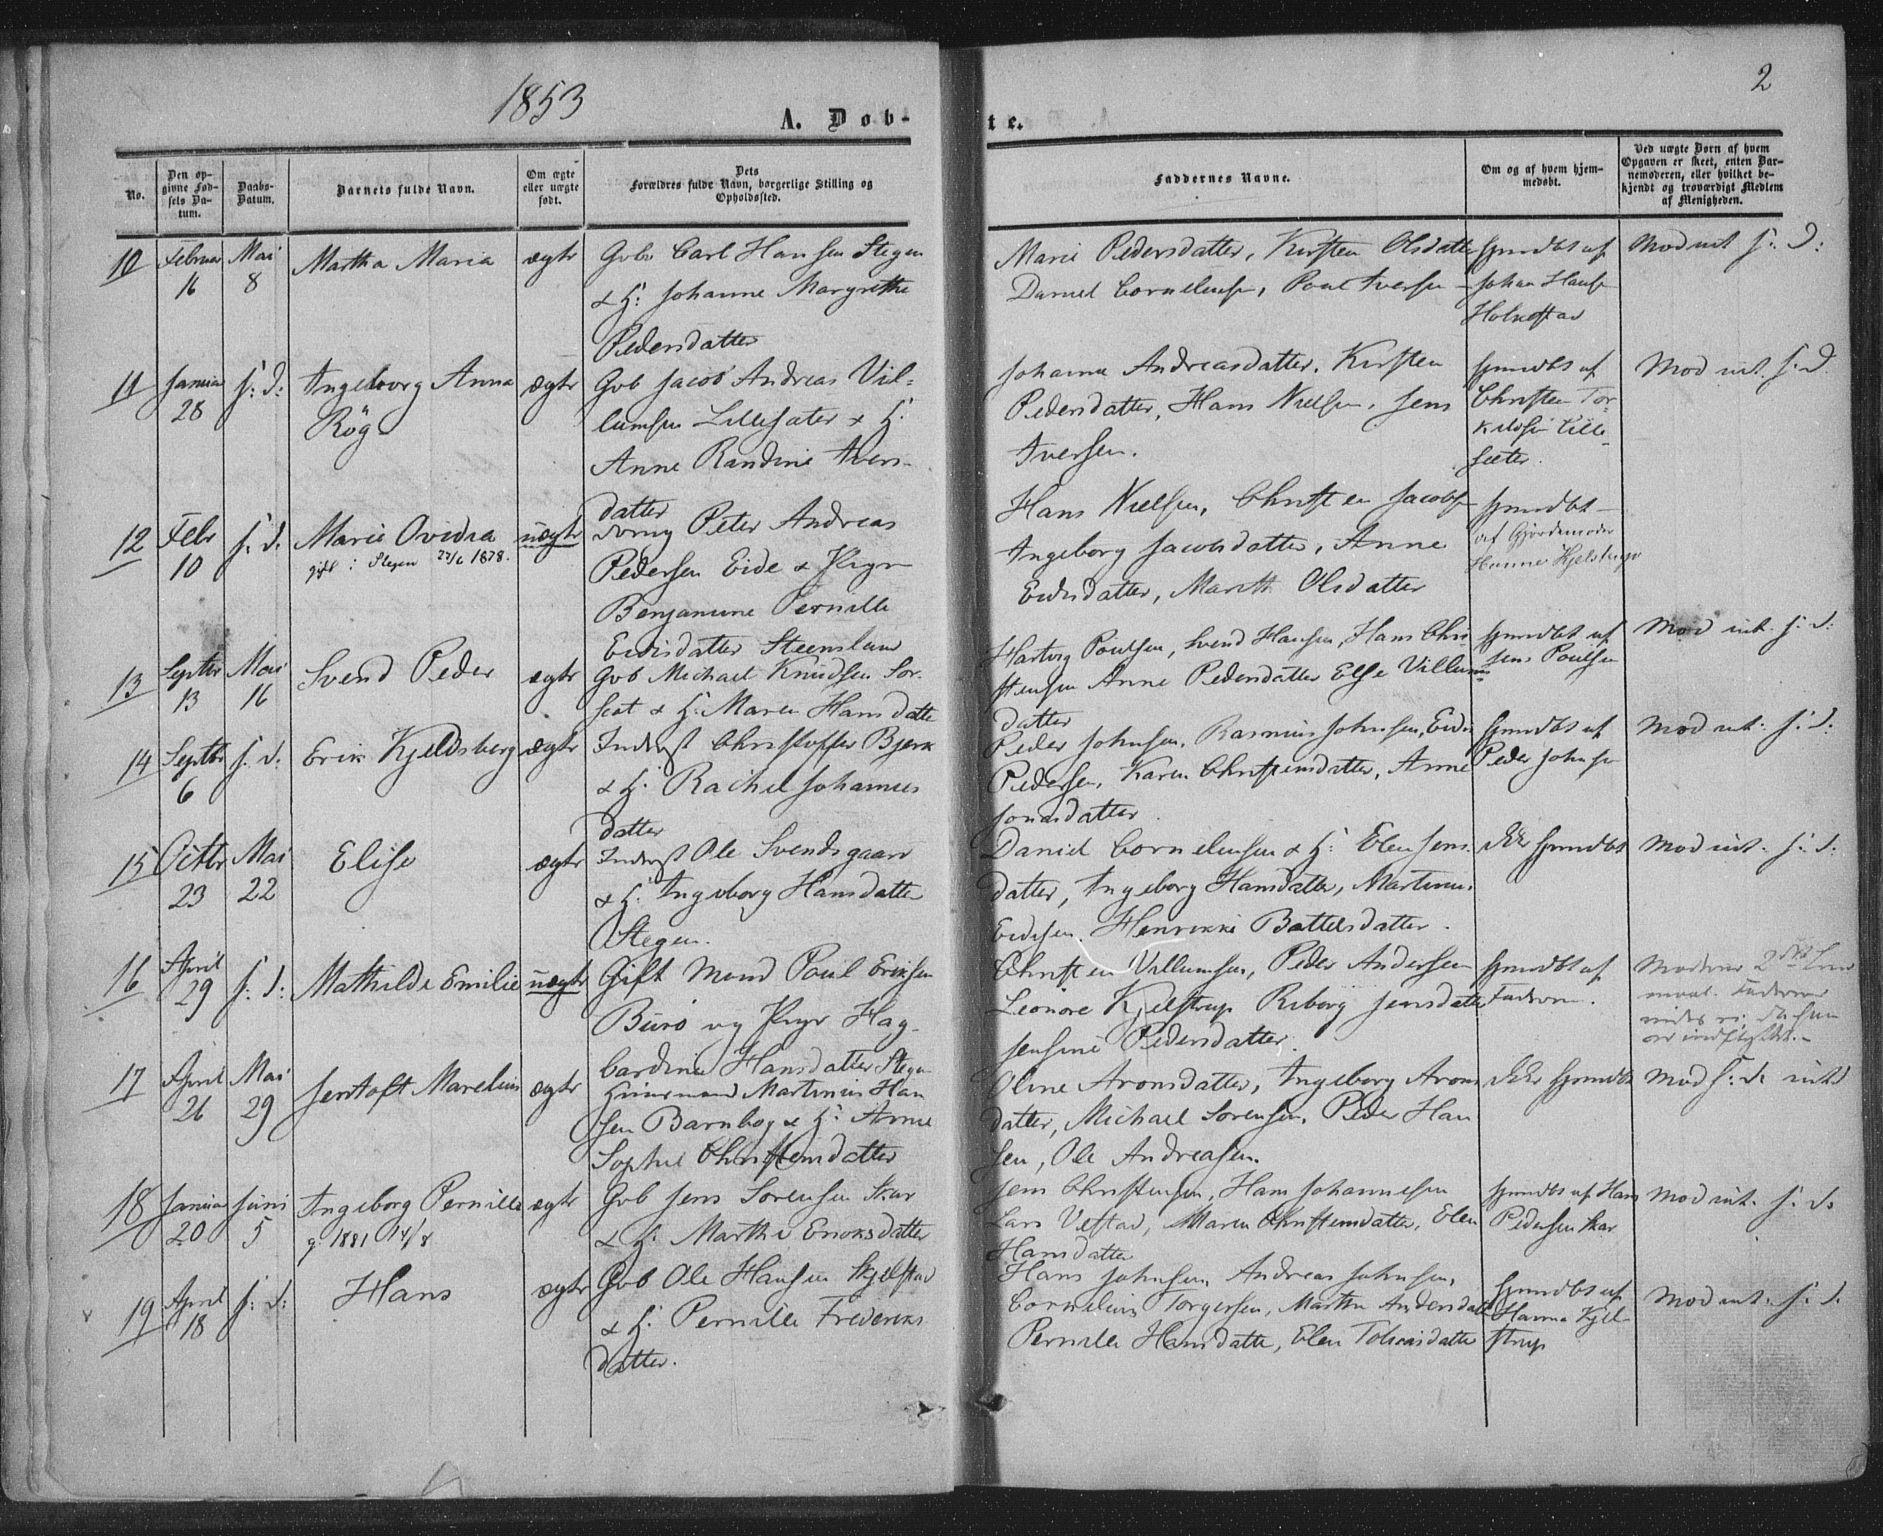 1853
2
A. Døb-
te.
No.
Den op-
givne Fød-
sels Da-
tum.
Daabs-
Datum.
Barnets fulde Navn.
Om ægte
eller uægte
født.
Dets
Forældres fulde Navn, borgerlige Stilling og
Opholdssted.
Faddernes Navne.
Om og af hvem hjem-
medøbt.
Ved uægte Børn af hvem
Opgaven er skeet, enten Bar-
nemoderen, eller hvilket be-
kjendt og troværdigt Medlem
af Menigheden.
10 Februar Mai Martha Maria ægte Gbr Carl Hansen Stegen
16 8 & H: Johanne Margrethe
Pedersdatter
Marie Pedersdatter, Kirsten Olsdatter
Daniel Cornelius, Poul Iversen
hjmdbt af
Johan Hans
Holmstad
Mod int. s: d:
11 Januar s: d: Ingeborg Anna ægte Gbr Jacob Andreas Vil-
28 Røg lumsen Lillesæter & H:
Anne Randine Ivers-
datter
Johanna Andreasdatter, Kirsten
Pedersdatter, Hans Nielsen, Jens
Iversen.
hjmdbt af
Christen Tor-
kildsen Lille-
sæter.
Mod int. s: d
12 Febr s: d: Marie Ovidia uægte Peter Andreas
10 gift i Stegen 1878. Pedersen Eide & Pige
Benjamine Pernille
Eidisdatter Steenslam
Hans Nielsen, Christen Jacobs
Ingeborg Jacobsdatter, Anne
Eidisdatter, Marith Olsdatter
hjmdbt
af Gjordemoder
Hanne Kjelstrup
Mod int. s: d:
13 Septbr Mai Svend Peder ægte Gbr Michael Knudsen
13 16 & H: Maren Hansdatter
Hartvig Poulsen, Svend Hansen, Hans Chri-
stensen Anne Pedersdatter Else Villums
datter
hjmdbt af
Jens Poulsen
14 Septbr s: d: Erik Kjeldsberg ægte Inderst Christoffer Bjerk
6 & H: Rachel Johannes
datter
Peder Johnsen, Rasmus Johnsen, Eidis
Pedersen, Karen Christensdatter, Anne
Jonasdatter.
hjmdbt af
Peder Johnsen
Mod int: s: d:
15 Octbr Mai Elise ægte Inderst Ole Svendsgaard
23 22 & H: Ingeborg Hansdatter
Stegen.
Daniel Cornelensen & H: Elen Jens-
datter, Ingeborg Hansdatter, Martinus
Eidesen, Henrikke Battelsdatter.
Ikke hjmdbt
Mod int. s: d:
16 April s: d: Mathilde Emilie uægte Gift Mand Paul Eriksen
29 og Pige Hag-
bardine Hansdatter Stegen
Christen Villumsen, Peder Andersen
Leonore Kjelstrup Riborg Jensdatter
Jensine Pedersdatter.
hjmdbt af
Faderen.
Moderens 2det
17 April Mai Jentoft Marelius ægte Huusmand Martinus Han
26 29 sen Barnbog & H: Anne
Sophie Christensdatter
Oline Aronsdatter, Ingeborg Arons
datter, Michael Sørensen, Peder Han
sen, Ole Andreasen.
Ikke hjmdbt
Mod s: d: int
18 Januar Juni Ingeborg Pernille ægte Gbr Jens Sørensen Skar
20 5 g. 1881 14/8 & H: Marthe Eriksdatter
Jens Christensen, Hans Johannesen
Lars Vestad, Maren Christensdatter, Elen
Hansdatter
hjmdbt af Hans
Pedersen Skar
Mod int. s: d.
19 April s: d: Hans ægte Gbr Ole Hansen Skjelstad
18 & H: Pernille Frederiks
datter.
Hans Johnsen, Andreas Johnsen,
Cornelius Torgersen, Martha Andersdatter
Pernille Hansdatter, Elen Tobiasdatter
hjmdbt af
Hanna Kjel-
strup
Mod int. s: d.